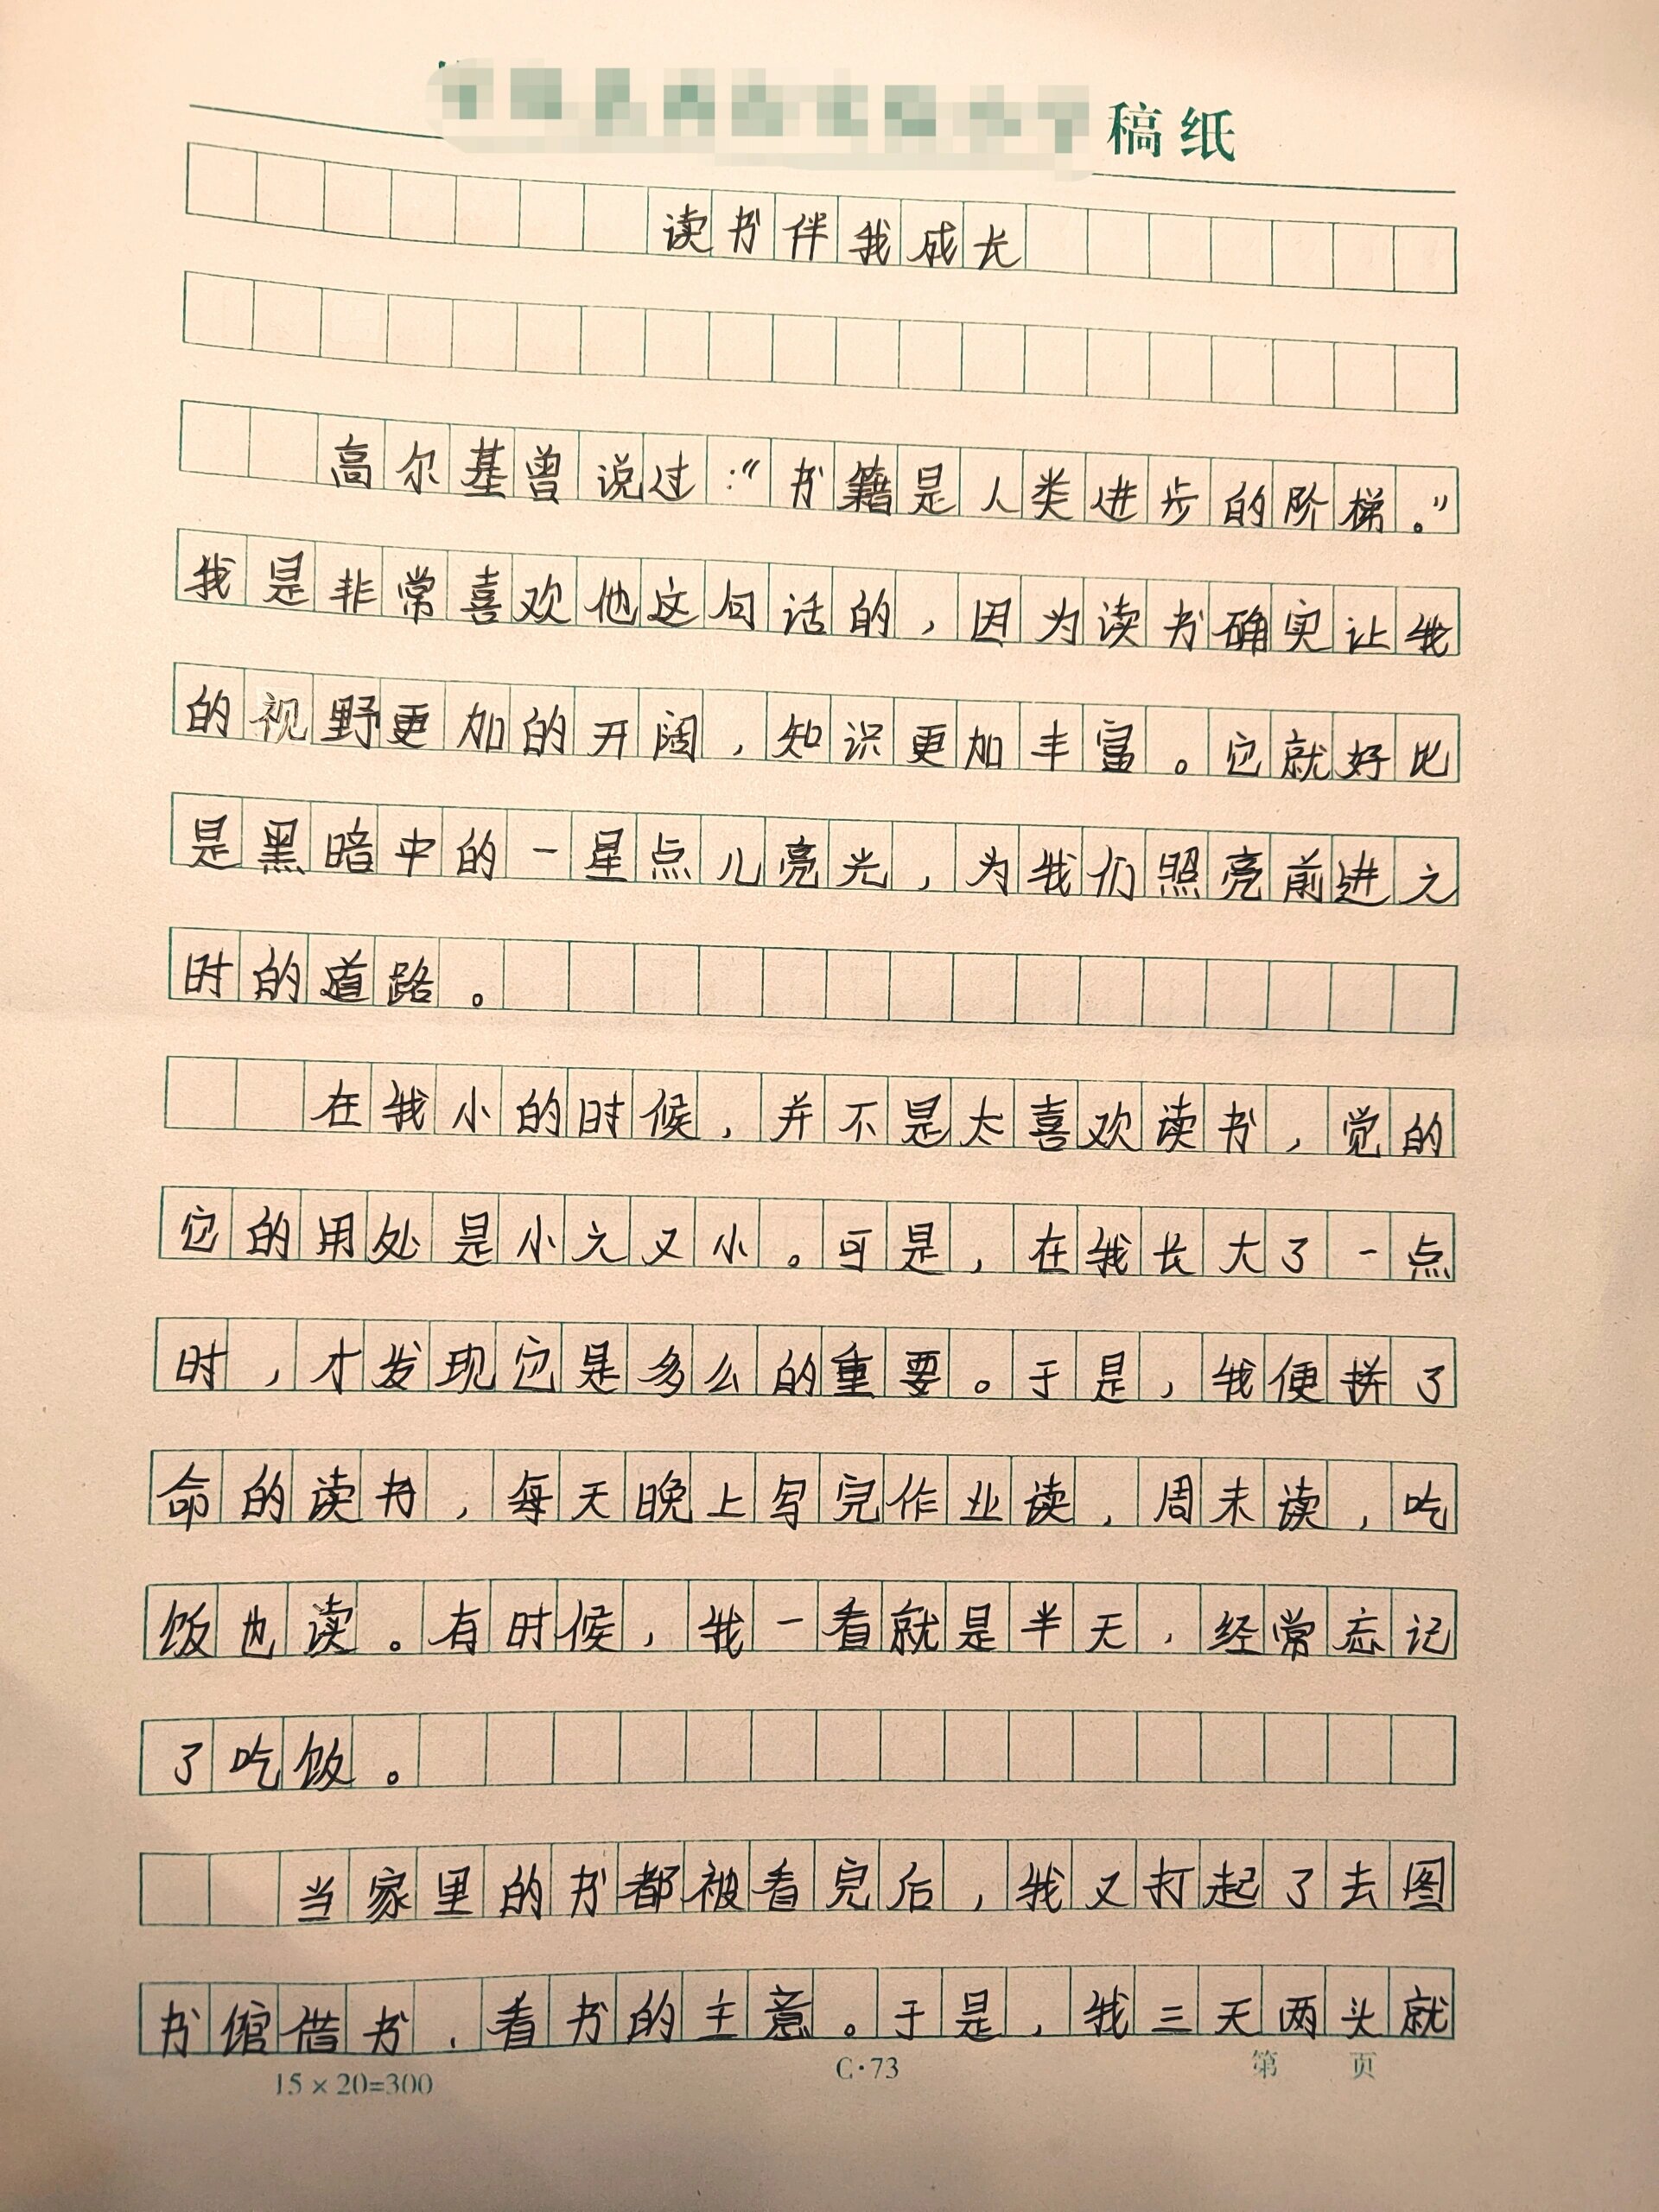 稿纸
读书伴我成长
高尔基曾说过:“书籍是人类进步的阶梯。”
我是非常喜欢他这句话的,因为读书确实让我
的视野更加的开阔,知识更加丰富。它就好比
是黑暗中的一星点儿亮光,为我们照亮前进之
时的道路。
在我小的时候,并不是太喜欢读书,觉的
它的用处是小之又小。可是,在我长大了一点
时,才发现它是多么的重要。于是,我便拼了
命的读书,每天晚上写完作业读,周末读,吃
饭也读。有时候,我一看就是半天,经常忘记
了吃饭。
当家里的书都被看完后,我又打起了去图
书馆借书,看书的主意。于是,我三天两头就
15×20=300 C·73 第 页